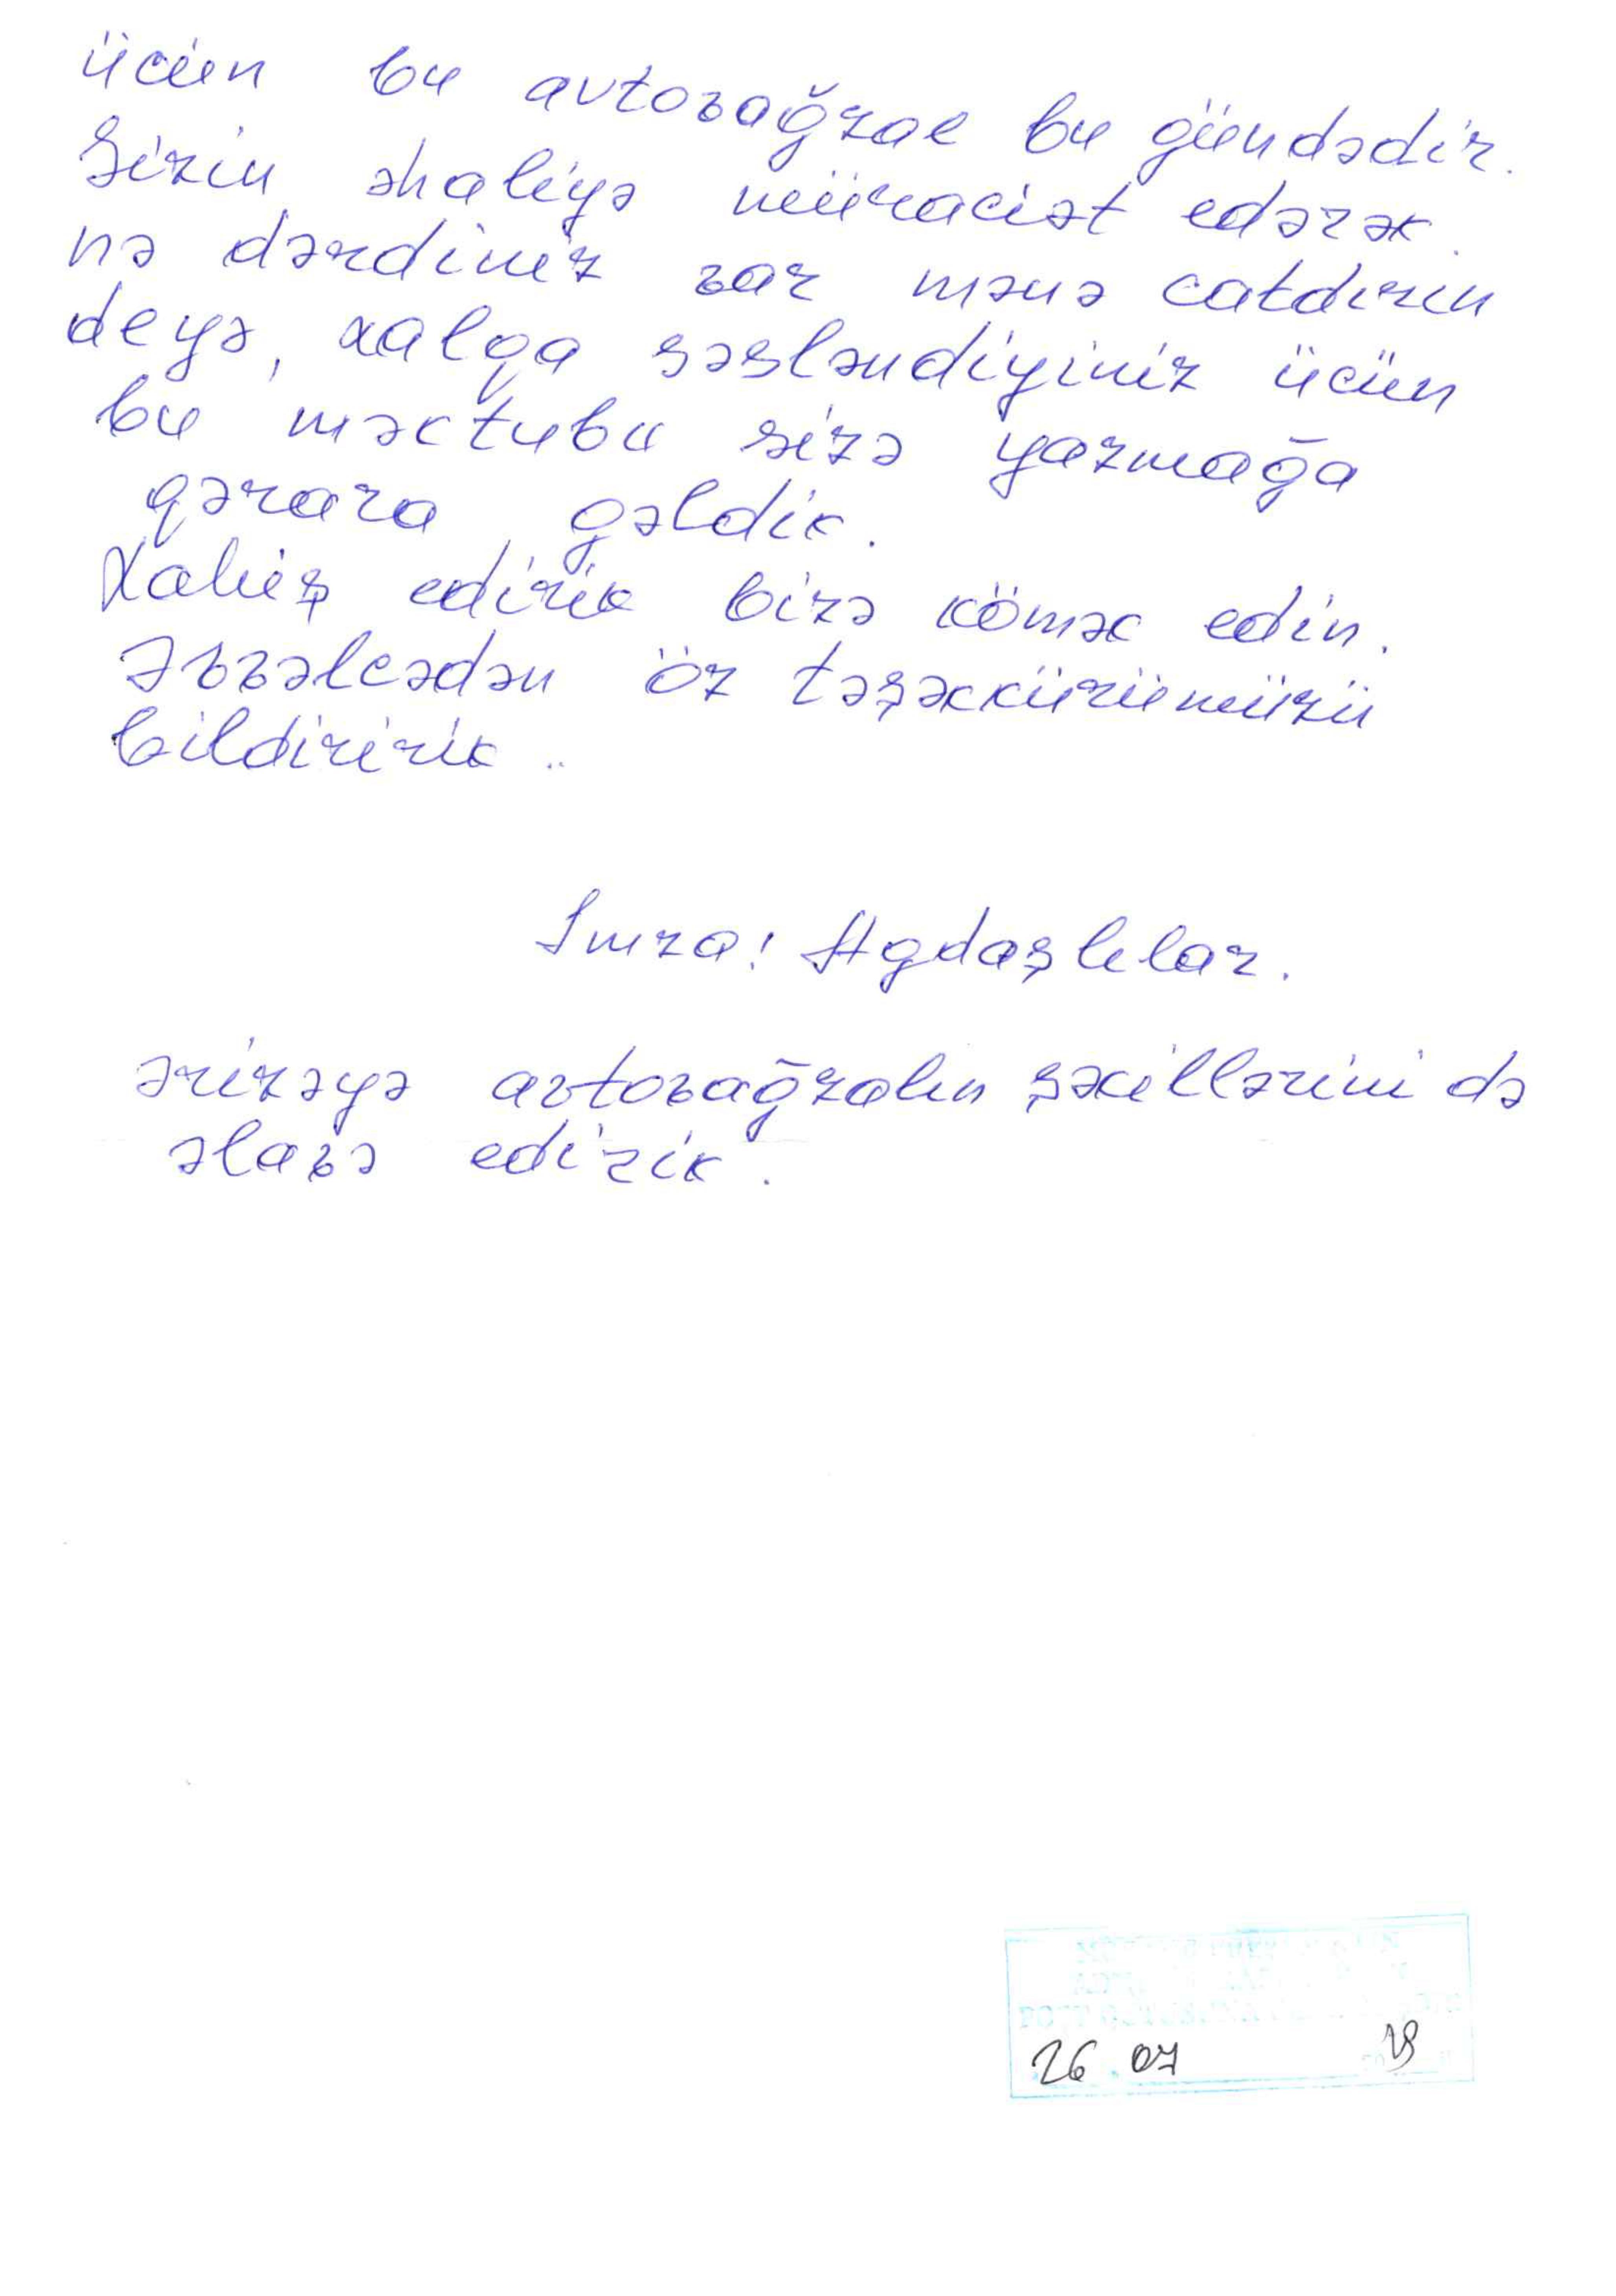 ücün bu avtovağzal bu gündədir.
Sizin əhaliyə müraciət edərək.
nə dərdiniz var mənə catdırın
deyə, xalqa səsləndiyiniz ücün
bu məktubu sizə yazmağa
qərara gəldik.
Xahiş edirik bizə kömək edin.
Əvvəlcədən öz təşəkkürümüzü
bildiririk..
Imza: Agdaşlılar.
ərizəyə avtovağzalın şəkillərini də
əlavə edirik.
26 07 18